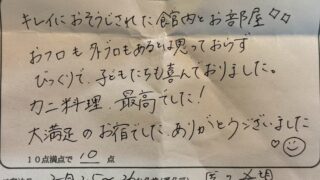 キレイにおそうじされた館内とお部屋♢♢
おフロも外ブロもあるとは思っておらず
びっくりで、子どもたちも喜んでおりました。
カニ料理、最高でした!
大満足のお宿でした。ありがとうございました
10点満点で 10 点